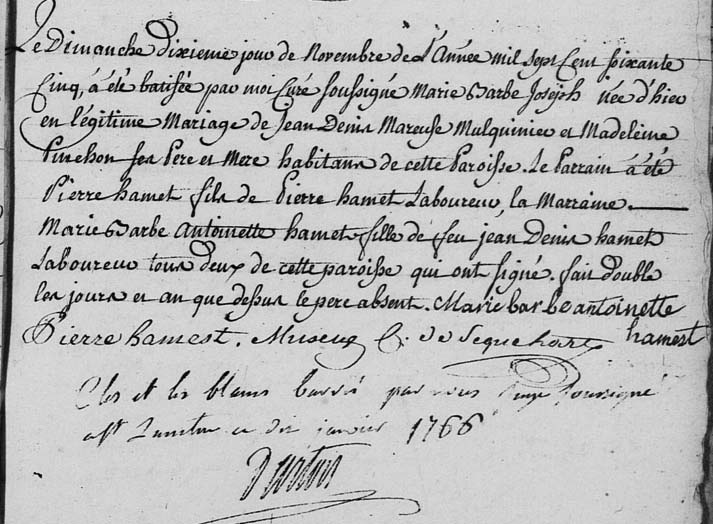 Le Dimanche dixieme jour de Novembre de l'Année mil sept Cent soixante
Cinq, à été batisée par moi Curé soussigné Marie Barbe Joseph née d'hier
en légitime Mariage de Jean Denis Mareuse Mulquinier et Madeleine
Pinchon ses Pere et Mere habitans de cette Paroisse. Le Parrain à été
Pierre hamet fils de Pierre hamet Laboureur, la Marraine
Marie Barbe Antoinette hamet fille de feu jean Denis hamet
Laboureur tous deux de cette paroisse qui ont signé. fait double
les jours et an que dessus le pere absent. Marie barbe antoinette
hamest
Pierre hamest. Museux C. de Sequehart
Clos et les blancs barrés par nous juge soussigné
a St quentin ce dix janvier 1766